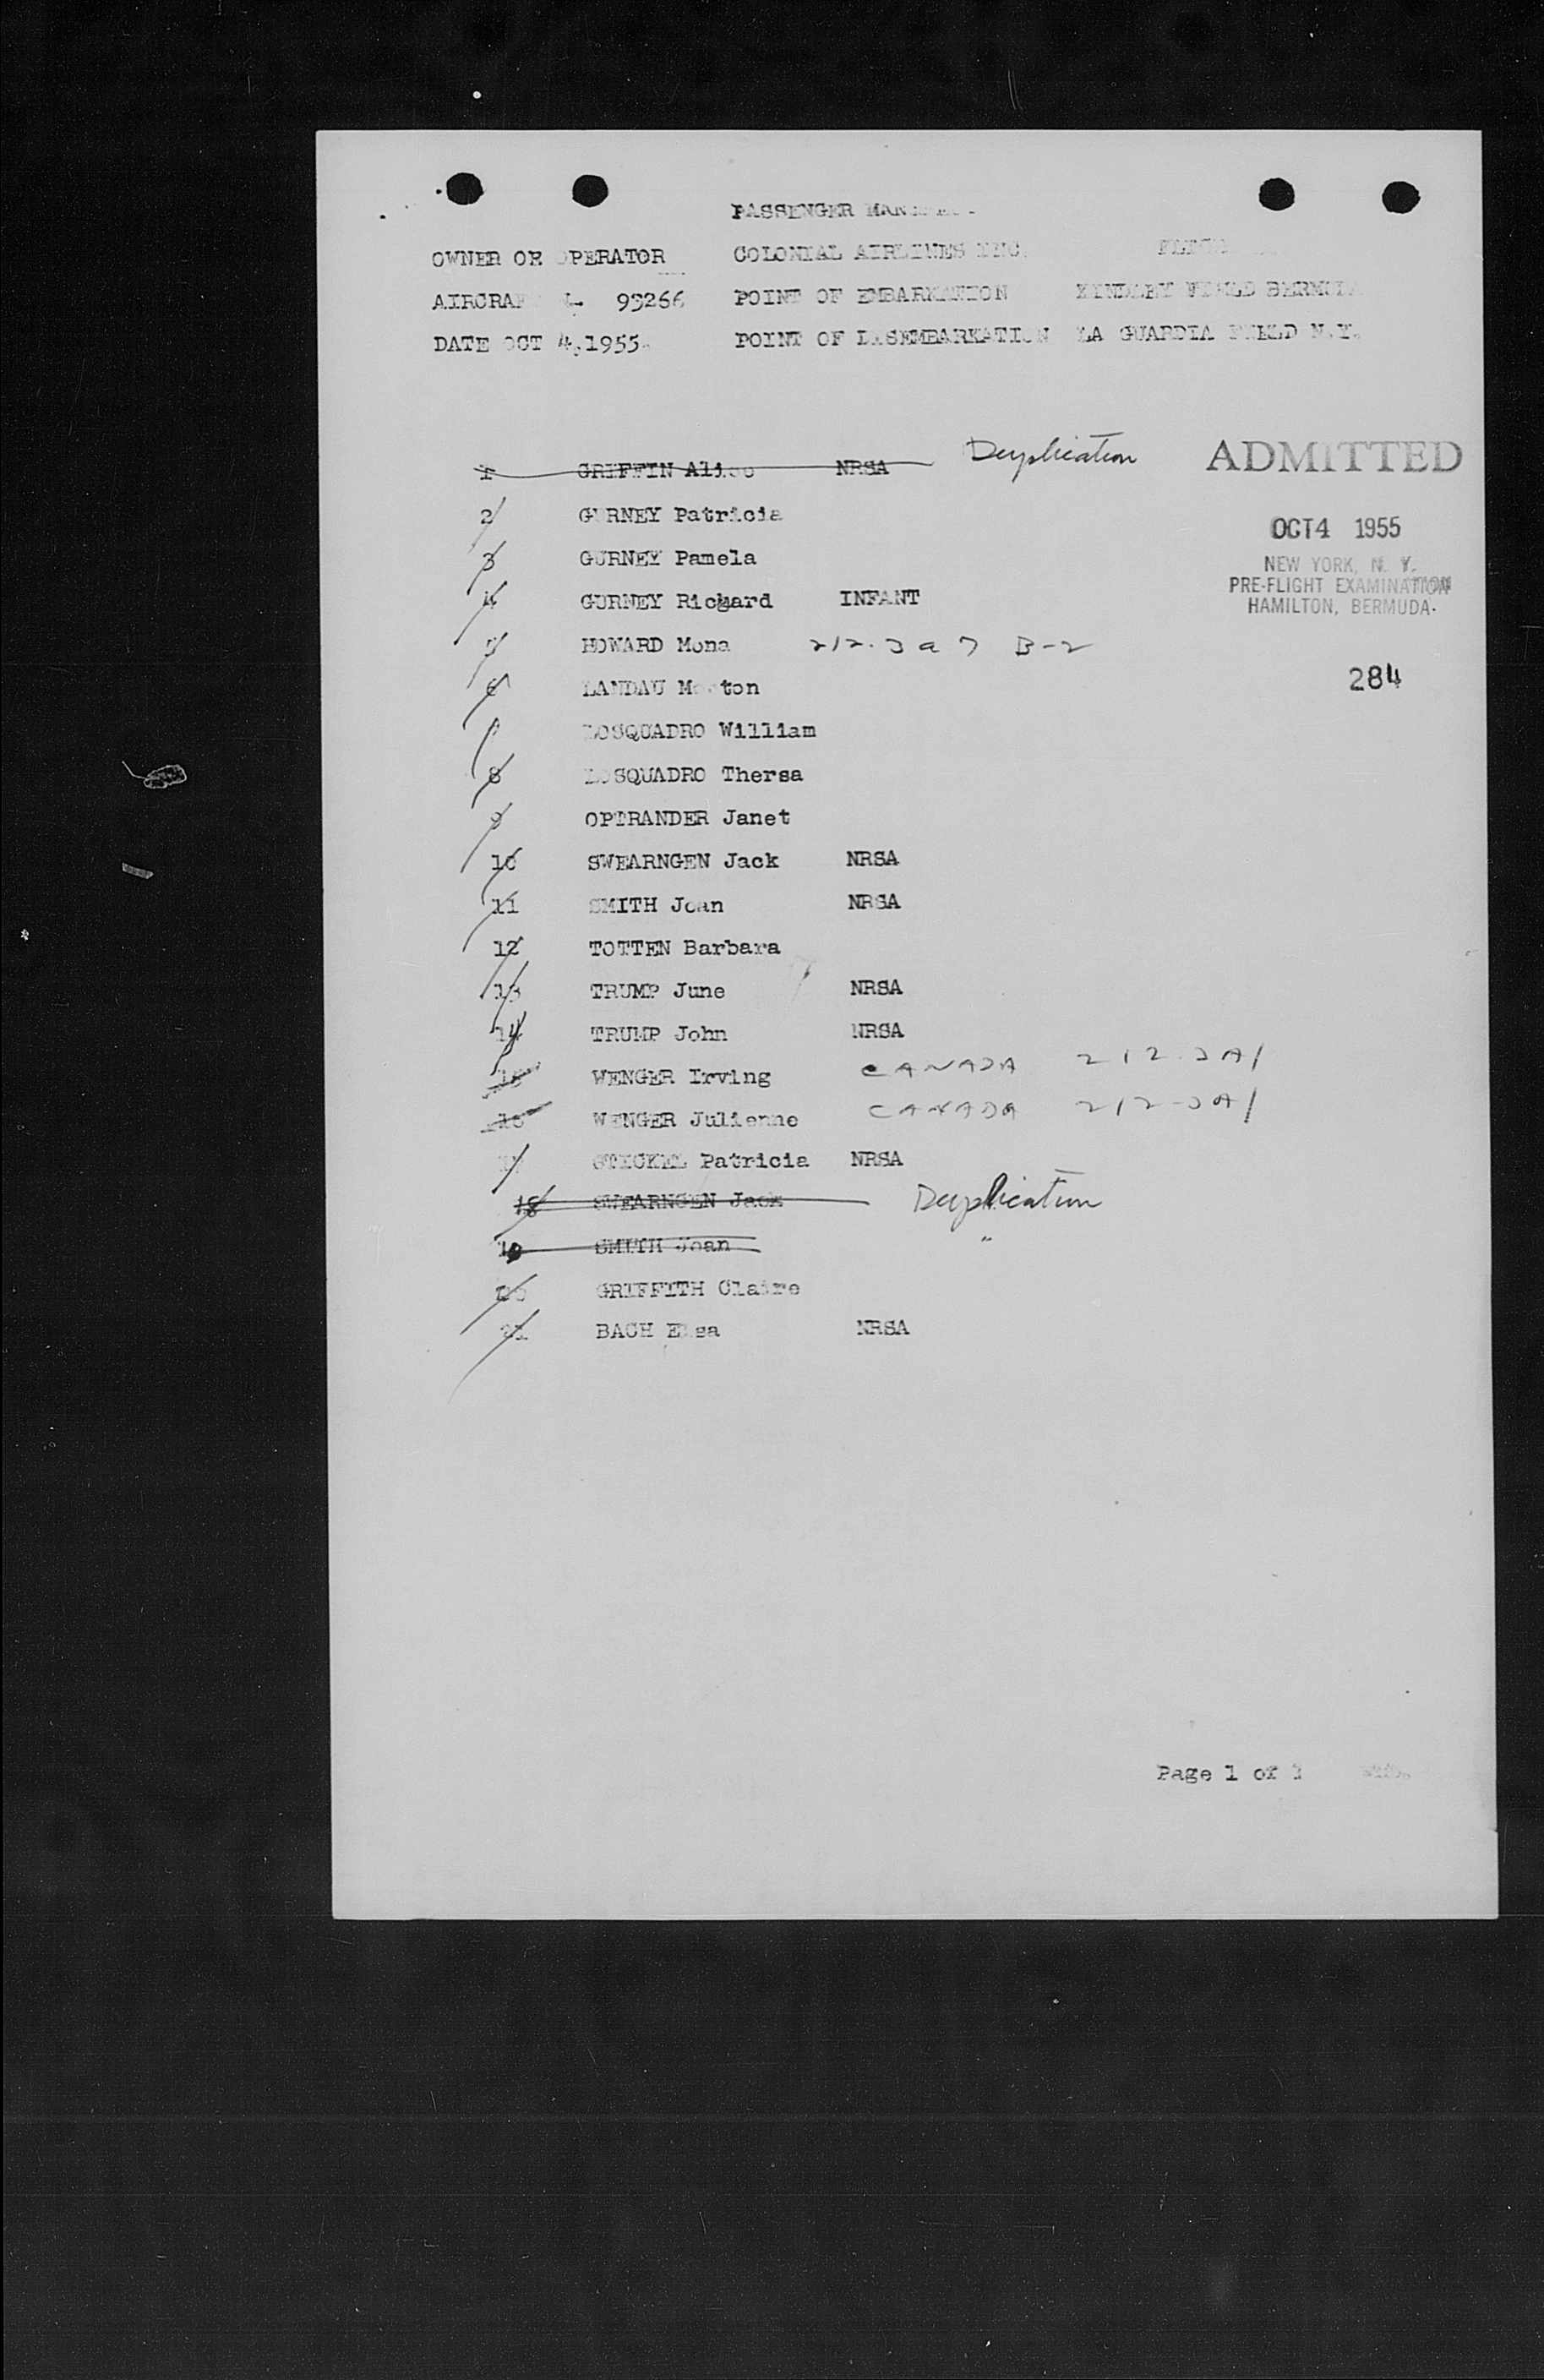 PASSENGER
OWNER OR OPERATOR COLONIAL AIRLINES INC.
AIRCRAF 93266 POINT OF EMBARKATION KINDLEY FIELD BERMUDA
DATE OCT 4,1955. POINT OF DISEMBARKATION LA GUARDIA FIELD N.Y.
1 GRIFFIN Alice NRSA Duplication
ADMITTED
2 GURNEY Patricia
OCT 4 1955
3 GURNEY Pamela
NEW YORK, N. Y.
PRE-FLIGHT EXAMINATION
4 GURNEY Richard INFANT
HAMILTON, BERMUDA.
5 HOWARD Mona 212.3 a 7 B-2
6 LANDAU Morton
284
7 LOSQUADRO William
8 LOSQUADRO Thersa
9 OPTRANDER Janet
10 SWEARNGEN Jack NRSA
11 SMITH Joan NRSA
12 TOTTEN Barbara
13 TRUMP June NRSA
14 TRUMP John NRSA
15 WENGER Irving CANADA 212.3A1
16 WENGER Julienne CANADA 212-3A1
17 STICKEL Patricia NRSA
18 SWEARNGEN Jack Duplication
19 SMITH Joan "
20 GRIFFITH Claire
21 BACH Elsa NRSA
Page 1 of 1